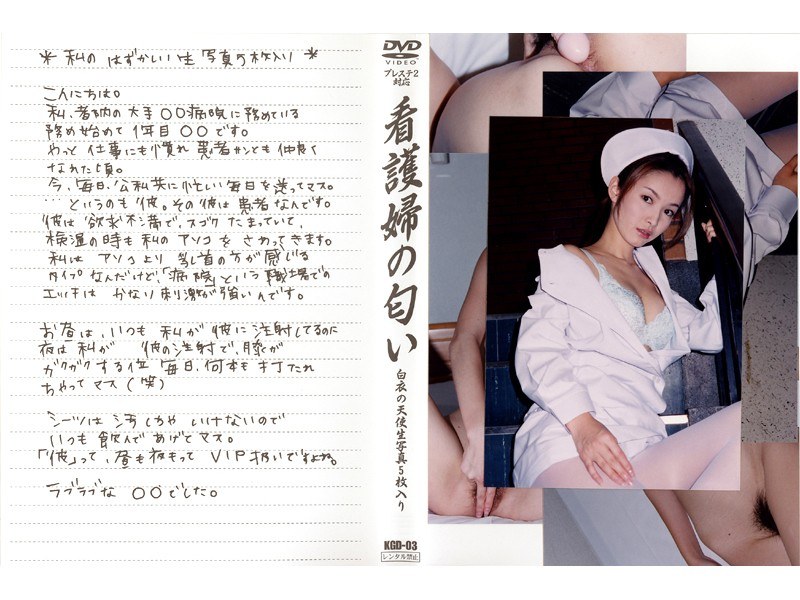 * 私の はずかしい生写真5枚入り *
こんにちは。
私、都内の大手〇〇病院に務めている
務め始めて1年目〇〇です。
やっと仕事にも慣れ患者サンとも仲良く
なれた頃。
今、毎日、公私共に忙しい毎日を送ってマス。
…というのも彼。その彼は患者なんです。
彼は欲求不満で、スゴクたまっていて、
検温の時も私のアソコをさわってきます。
私はアソコより乳首の方が感じる
タイプなんだけど、「病院」という職場での
エッチはかなり刺激が強いんです。
お昼は、いつも私が彼に注射してるのに
夜は私が 彼の注射で、膝が
ガクガクする位 毎日、何本も打たれ
ちゃってマス(笑)
シーツは汚しちゃいけないので
いつも飲んであげてマス。
「彼」って、昼も夜もって VIP扱いですよね。
ラブラブな〇〇でした。
DVD
VIDEO
プレステ2
対応
看護婦の匂い
白衣の天使生写真5枚入り
KGD-03
レンタル禁止